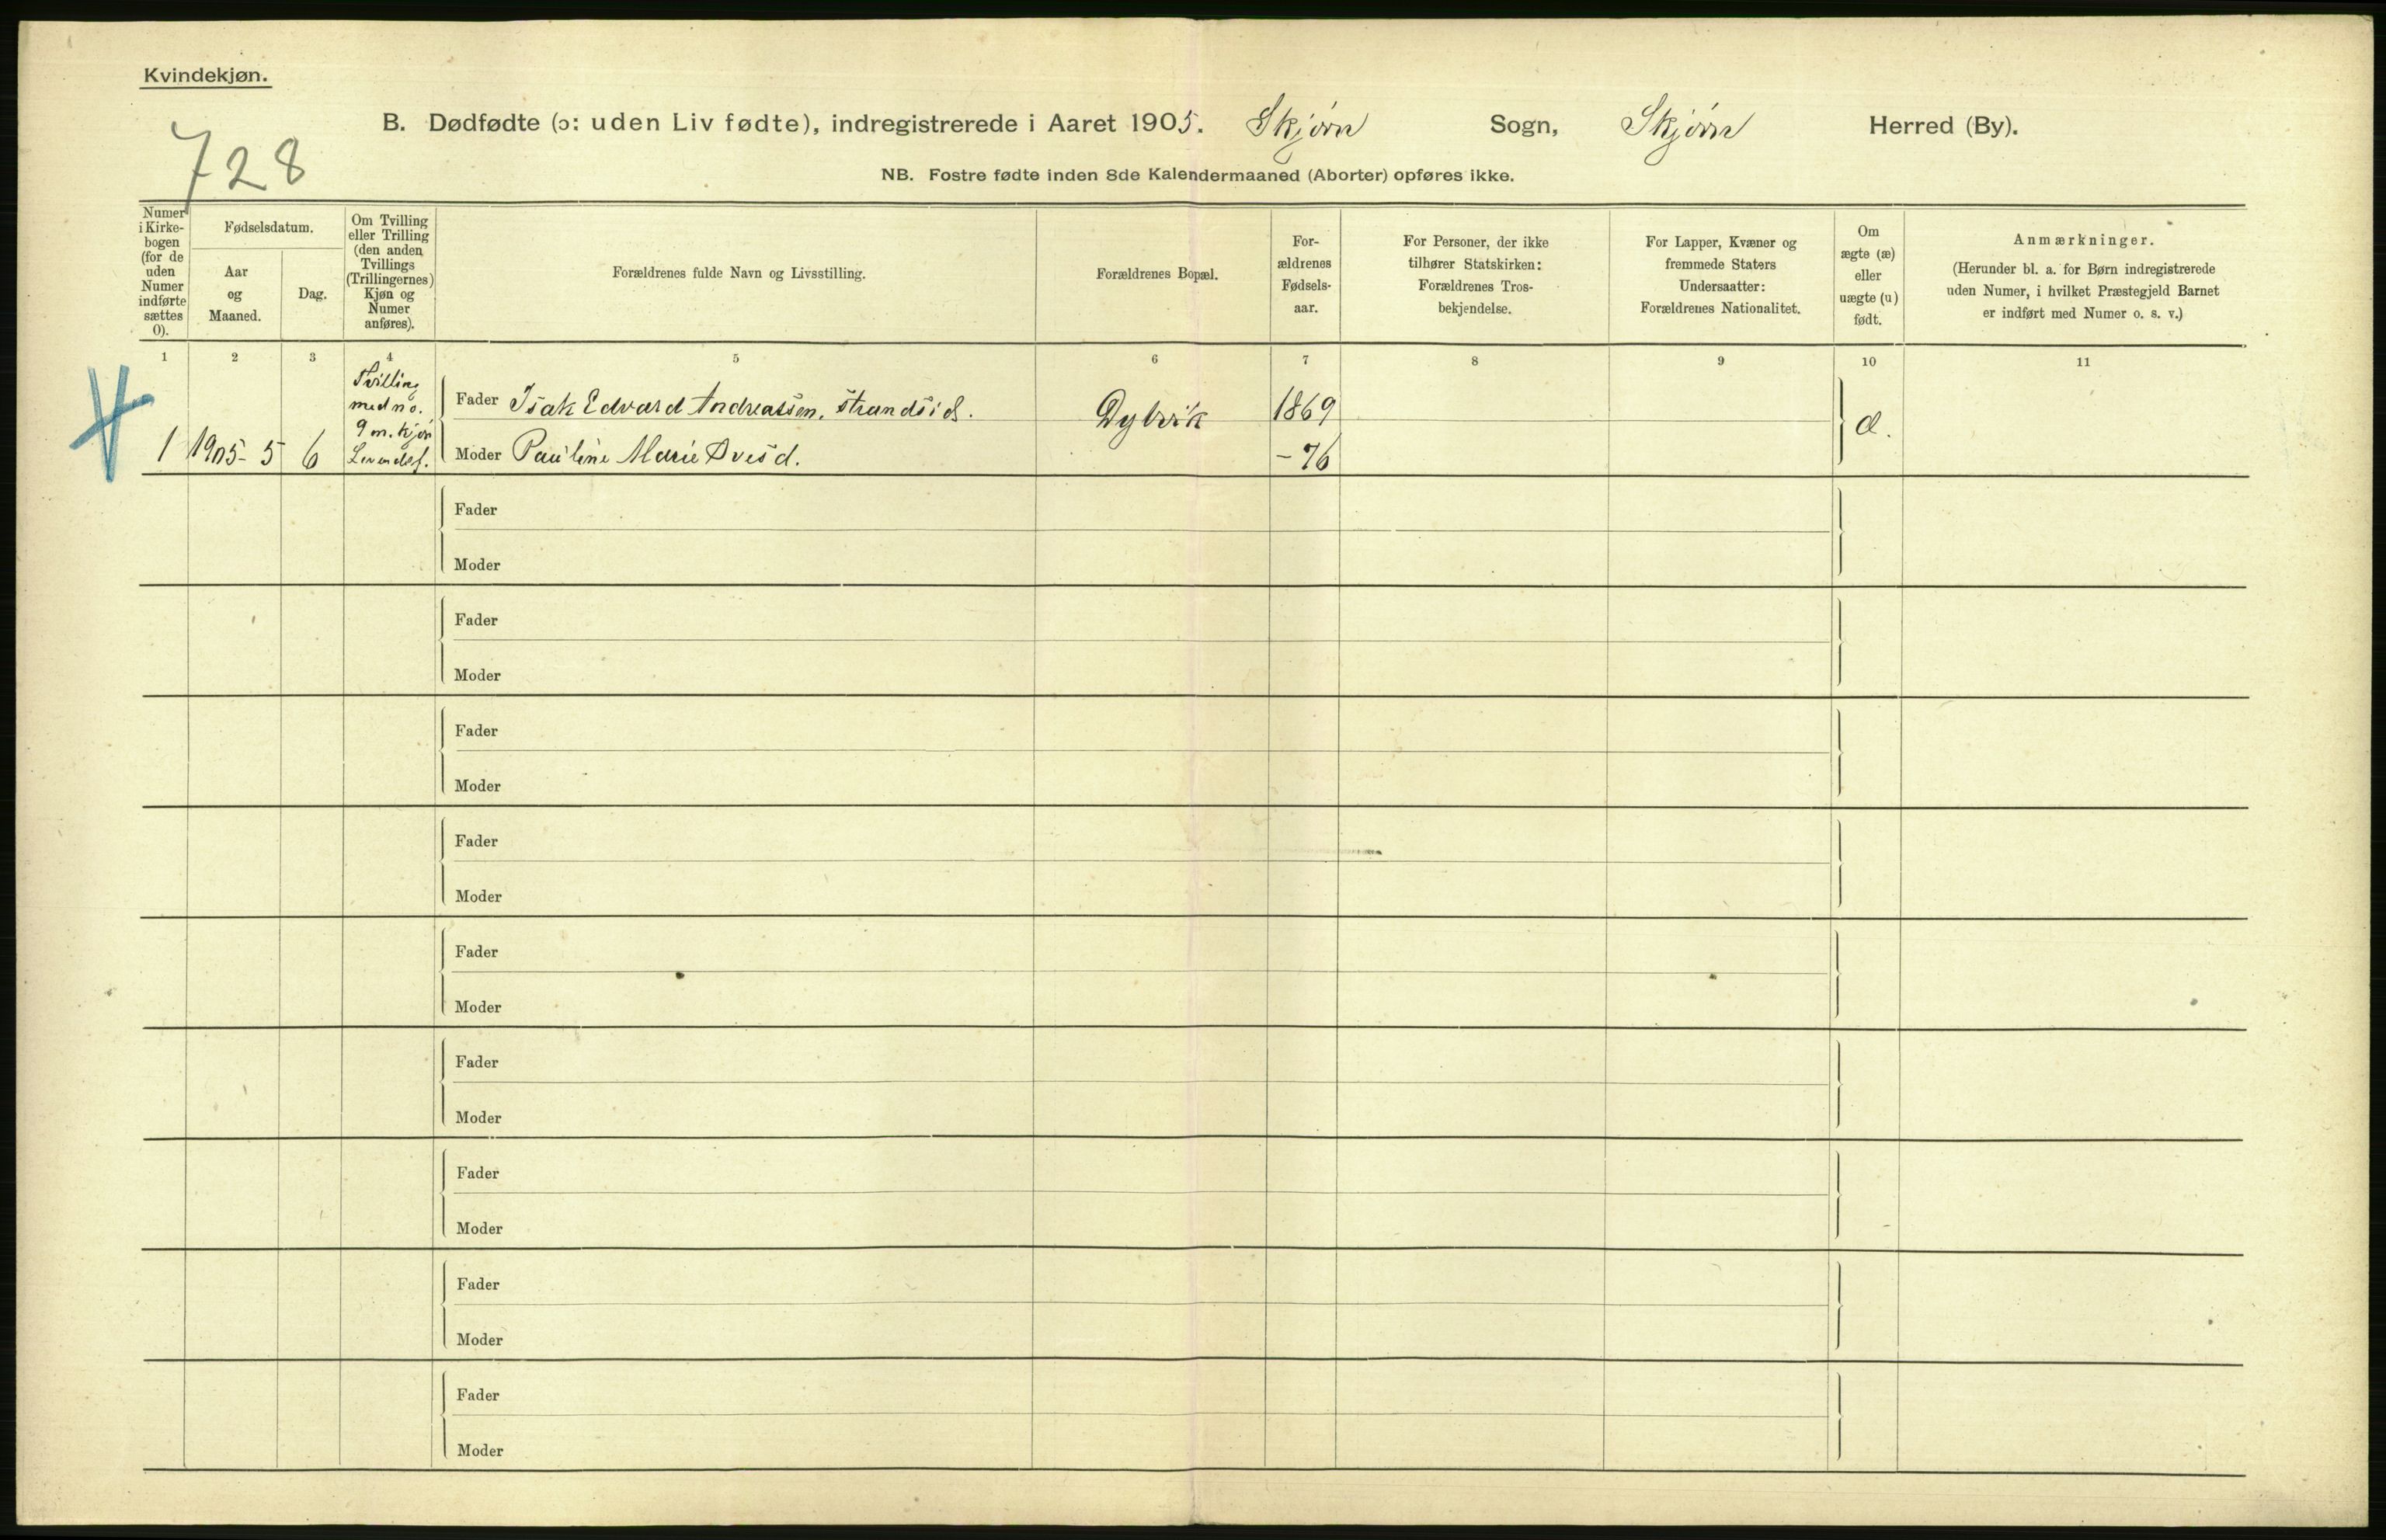 Kvindekjøn.
728
B. Dødfødte (ɔ: uden Liv fødte), indregistrerede i Aaret 1905. Skjørn Sogn, Skjørn Herred (By).
NB. Fostre fødte inden 8de Kalendermaaned (Aborter) opføres ikke.
Numer
i Kirke-
bogen
(for de
uden
Numer
indførte
sættes
0).
Fødselsdatum.
Aar
og
Maaned.
Dag.
Om Tvilling
eller Trilling
(den anden
Tvillings
(Trillingernes)
Kjøn og
Numer
anføres).
Forældrenes fulde Navn og Livsstilling.
Forældrenes Bopæl.
For-
ældrenes
Fødsels-
aar.
For Personer, der ikke
tilhører Statskirken:
Forældrenes Tros-
bekjendelse.
For Lapper, Kvæner og
fremmede Staters
Undersaatter:
Forældrenes Nationalitet.
Om
ægte (æ)
eller
uægte (u)
født.
Anmærkninger.
(Herunder bl. a. for Børn indregistrerede
uden Numer, i hvilket Præstegjeld Barnet
er indført med Numer o. s. v.)
1 2 3 4 5 6 7 8 9 10 11
1 1905- 5 6
Tvilling
med no.
9 m. kjøn
Levendef.
Fader Isak Edvard Andreassen, strandsid.
Moder Pauline Marie Ovesd.
Dybvik
1869
- 76
Fader
Moder
Fader
Moder
Fader
Moder
Fader
Moder
Fader
Moder
Fader
Moder
Fader
Moder
Fader
Moder
Fader
Moder